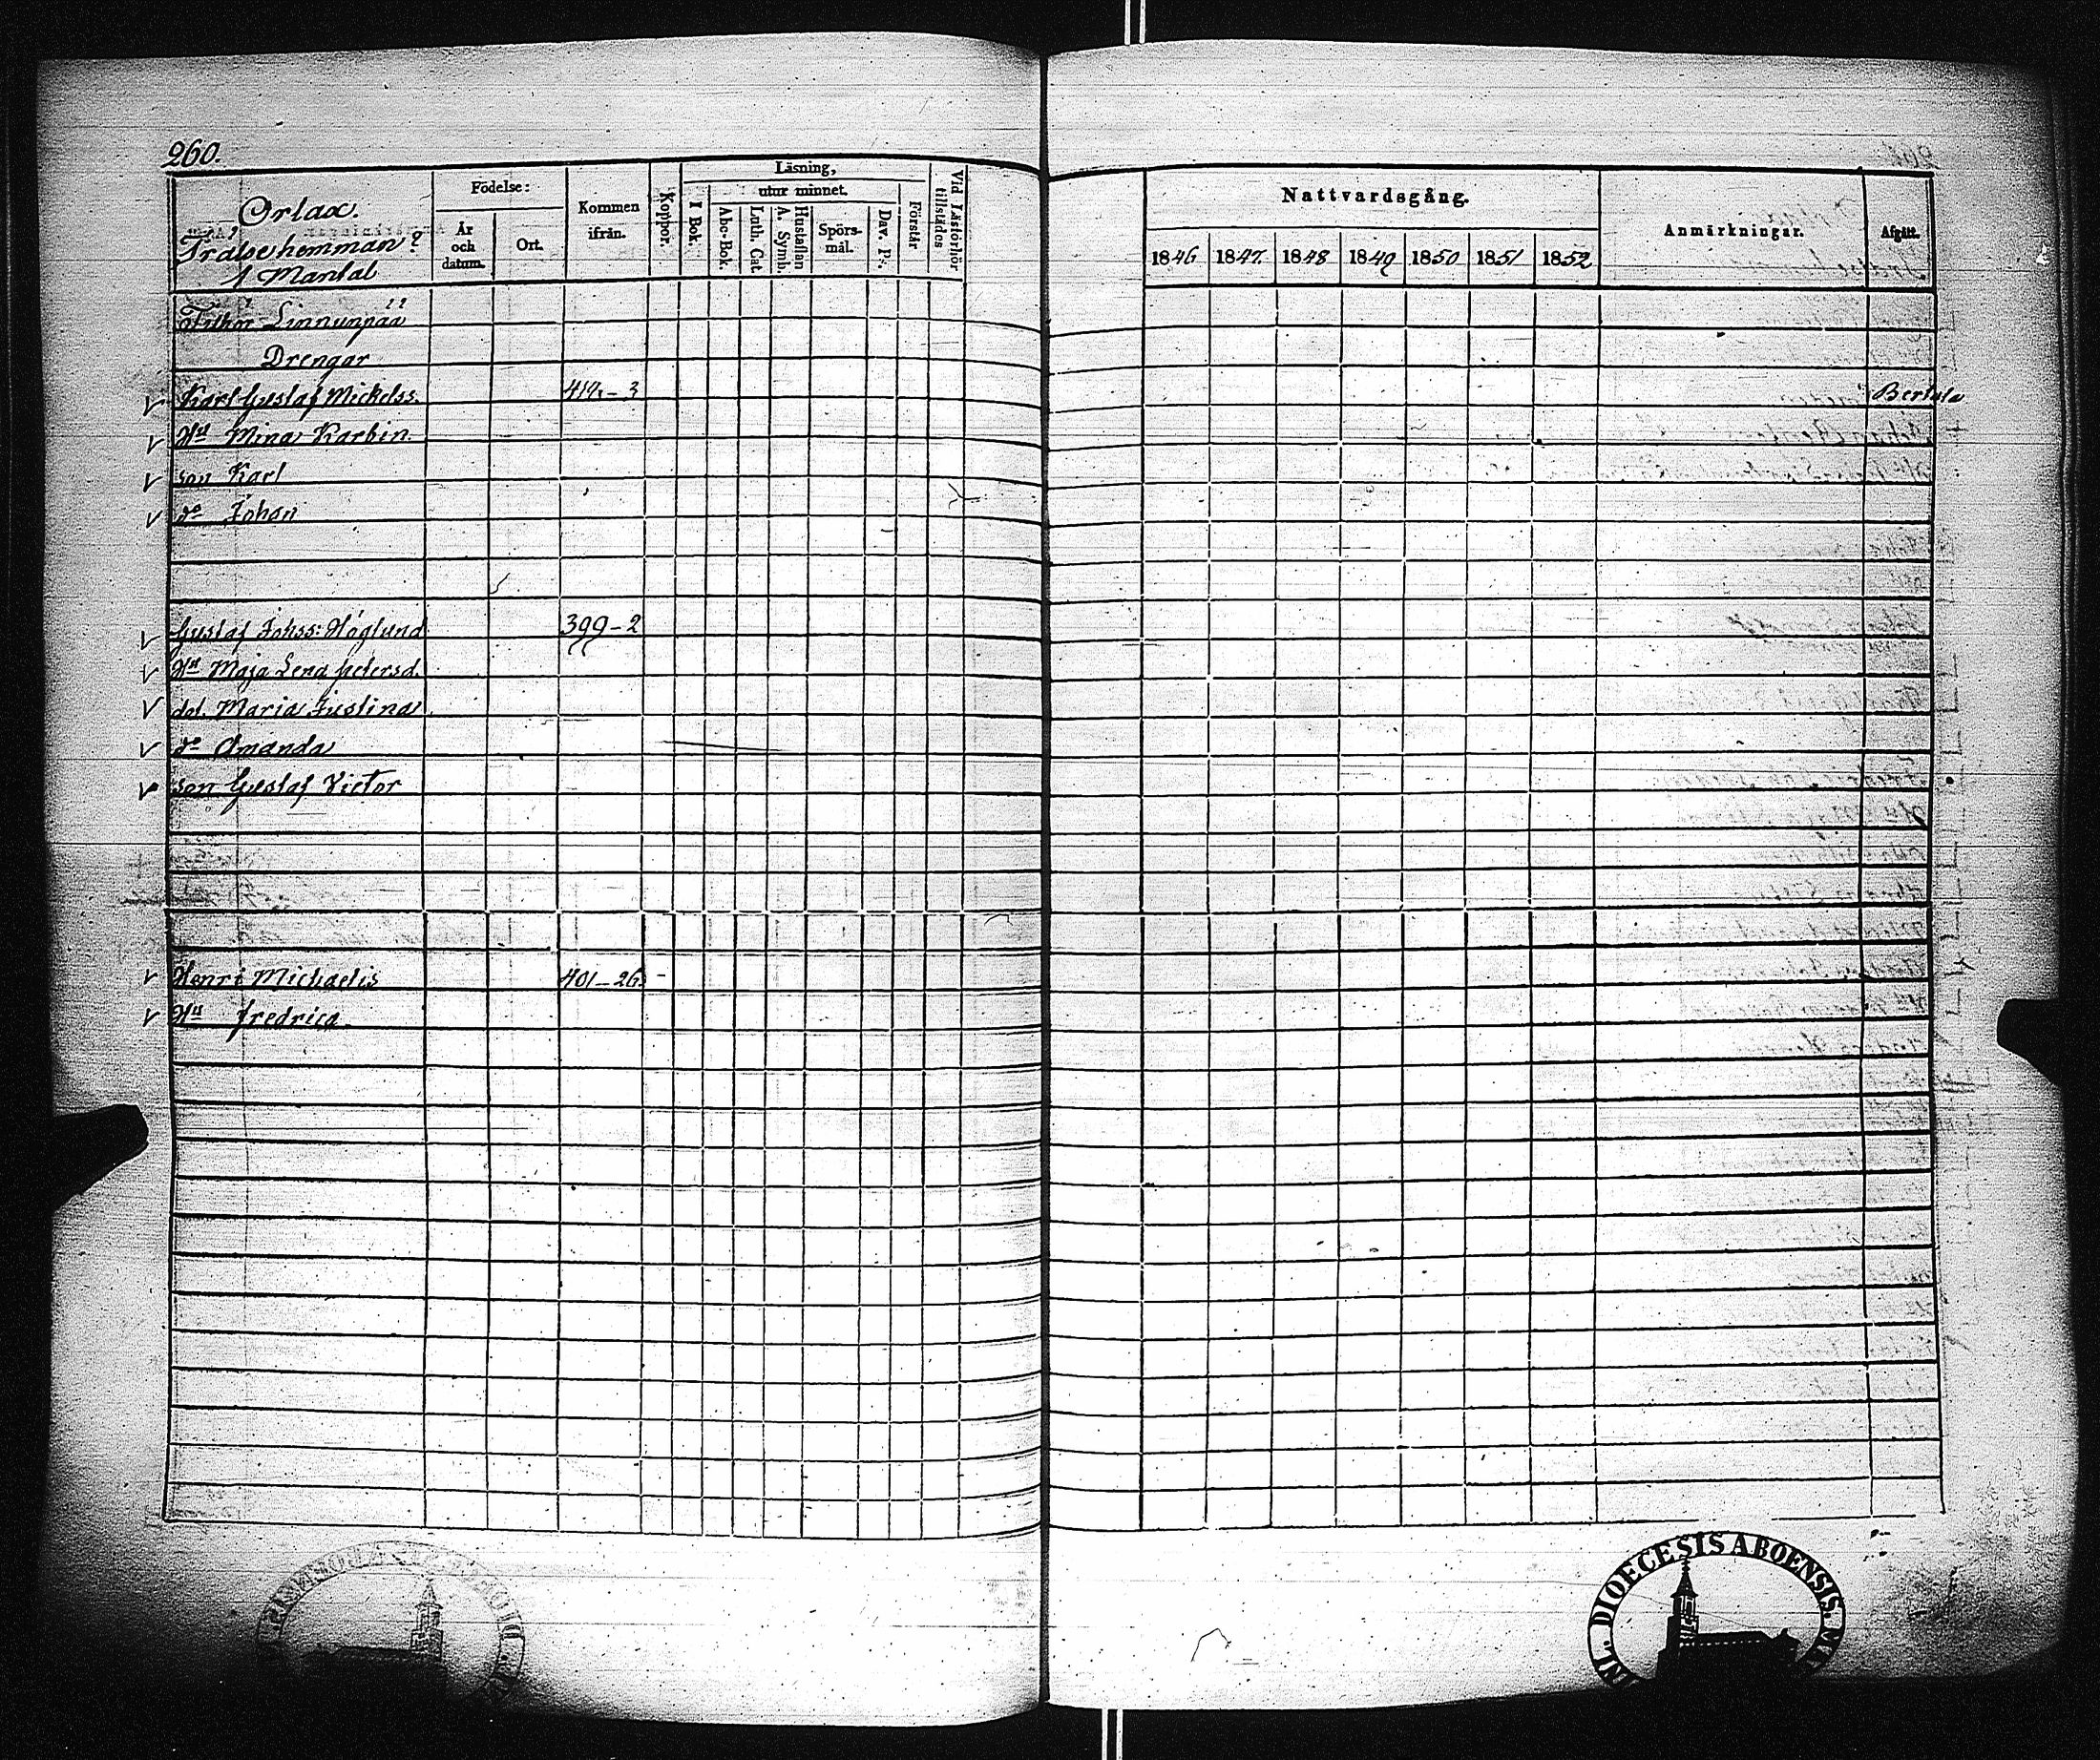 260.
Orlax.
Frälsehemman
1 Mantal
Födelse:
År och datum.
Ort.
Kommen ifrån.
Koppor.
Läsning,
utur minnet.
I Bok.
Abc-Bok.
Luth. Cat.
Hustaflan A. Symb.
Spörs-mål.
Dav. P:.
Förstår
Vid Läsförhör tillstädes
Nattvardsgång.
1846 1847 1848 1849 1850 1851 1852
Anmärkningar.
Afgått.
Linnunpää
Drengar
Karl Gustaf Mickelss. 3 Bertula
Hu Mina Karbin.
son Karl
do Johan
Gustaf Johss: Höglund 399-2
Hu Maja Lena Petersd.
dot. Maria Justina
do Amanda
son Gustaf Victor
Henri Michaelis 401-26
Hu Fredrica
DIOECESIS ABOENSIS.